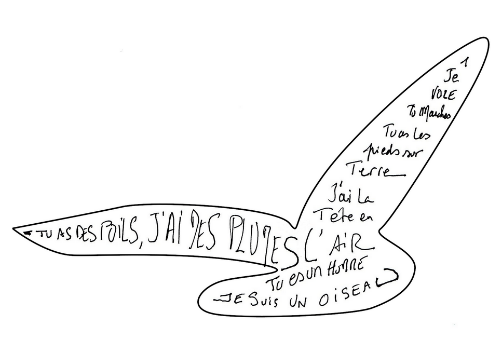 Je
VOLE
Tu Marches
Tu as Les
pieds sur
Terre
J'ai La
Tête en
L'AIR
TU AS DES POILS, J'AI DES PLUMES
TU ES UN HOMME
JE SUIS UN OISEAU